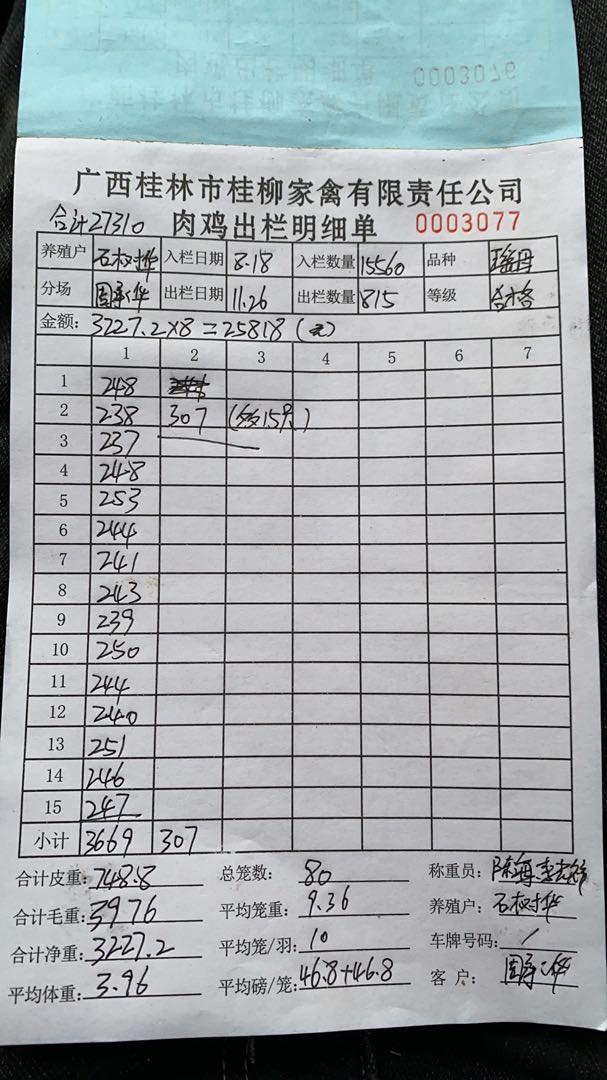 0003076
广西桂林市桂柳家禽有限责任公司
合计27310 肉鸡出栏明细单 0003077
养殖户 石权桦 入栏日期 8.18 入栏数量 15560 品种 瑶丹
分场 出栏日期 11.26 出栏数量 815 等级 合格
金额: 3227.2×8=25818(元)
1 2 3 4 5 6 7
1 248
2 238 307 (多15只)
3 237
4 248
5 253
6 244
7 241
8 243
9 239
10 250
11 244
12 240
13 251
14 246
15 247
小计 3669 307
合计皮重: 748.8 总笼数: 80 称重员:
合计毛重: 3976 平均笼重: 9.36 养殖户: 石权桦
合计净重: 3227.2 平均笼/羽: 10 车牌号码: /
平均体重: 3.96 平均磅/笼: 46.8+46.8 客户: